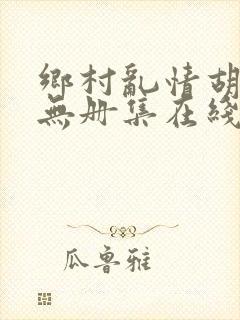 鄉村亂情胡
無册集在綫
瓜鲁雅